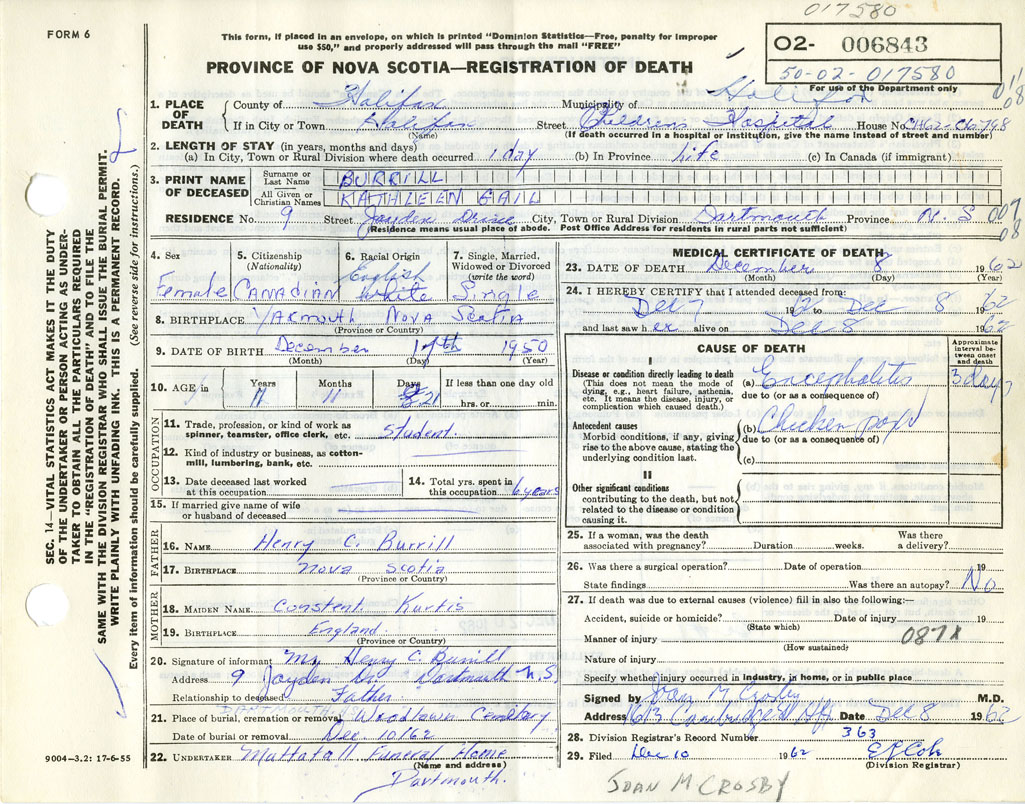 017580
FORM 6
This form, if placed in an envelope, on which is printed "Dominion Statistics—Free, penalty for improper
use $50," and properly addressed will pass through the mail "FREE"
O2- 006843
50-02-017580
For use of the Department only
PROVINCE OF NOVA SCOTIA—REGISTRATION OF DEATH
1. PLACE OF DEATH County of Halifax Municipality of Halifax
If in City or Town Halifax Street Childrens Hospital House No.
(Name) (If death occurred in a hospital or institution, give its name instead of street and number)
2. LENGTH OF STAY (in years, months and days)
(a) In City, Town or Rural Division where death occurred 1 day (b) In Province Life (c) In Canada (if immigrant)
3. PRINT NAME OF DECEASED
Surname or Last Name BURRILL
All Given or Christian Names KATHLEEN GAIL
RESIDENCE No. 9 Street Jayden Drive City, Town or Rural Division Dartmouth Province N.S
(Residence means usual place of abode. Post Office Address for residents in rural parts not sufficient)
4. Sex Female
5. Citizenship (Nationality) CANADIAN
6. Racial Origin English White
7. Single, Married, Widowed or Divorced (write the word) Single
8. BIRTHPLACE YARMOUTH NOVA SCOTIA
(Province or Country)
9. DATE OF BIRTH December 17th 1950
(Month) (Day) (Year)
10. AGE in Years 11 Months 11 Days 21 If less than one day old hrs. or min.
OCCUPATION
11. Trade, profession, or kind of work as spinner, teamster, office clerk, etc. Student
12. Kind of industry or business, as cotton-mill, lumbering, bank, etc.
13. Date deceased last worked at this occupation
14. Total yrs. spent in this occupation 6 years
15. If married give name of wife or husband of deceased
FATHER
16. NAME Henry C. Burrill
17. BIRTHPLACE Nova Scotia
(Province or Country)
MOTHER
18. MAIDEN NAME Constent Kurtis
19. BIRTHPLACE England
(Province or Country)
20. Signature of informant Mr Henry C. Burrill
Address 9 Jayden Dr. Dartmouth N.S
Relationship to deceased Father
DARTMOUTH
21. Place of burial, cremation or removal Woodlawn Cemetery
Date of burial or removal Dec. 10/62
22. UNDERTAKER Mattatall Funeral Home
(Name and address)
Dartmouth.
MEDICAL CERTIFICATE OF DEATH
23. DATE OF DEATH December 8 1962
(Month) (Day) (Year)
24. I HEREBY CERTIFY that I attended deceased from:
Dec 7 1962 to Dec 8 1962
and last saw her alive on Dec 8 1962
CAUSE OF DEATH
Approximate interval between onset and death
I
Disease or condition directly leading to death
(This does not mean the mode of dying, e.g., heart failure, asthenia, etc. It means the disease, injury, or complication which caused death.)
(a) Encephalitis 3 days
due to (or as a consequence of)
Antecedent causes
Morbid conditions, if any, giving rise to the above cause, stating the underlying condition last.
(b) Chicken pox
due to (or as a consequence of)
(c)
II
Other significant conditions
contributing to the death, but not related to the disease or condition causing it.
25. If a woman, was the death associated with pregnancy? Duration weeks. Was there a delivery?
26. Was there a surgical operation? Date of operation 19
State findings Was there an autopsy? No
27. If death was due to external causes (violence) fill in also the following:—
Accident, suicide or homicide? Date of injury 19
(State which)
Manner of injury 087X
(How sustained)
Nature of injury
Specify whether injury occurred in industry, in home, or in public place
Signed by Joan M Crosby M.D.
Address 1613 Cambridge St Hfx Date Dec 8 1962
28. Division Registrar's Record Number 363
29. Filed Dec 10 1962
(Division Registrar)
JOAN M CROSBY
SEC. 14—VITAL STATISTICS ACT MAKES IT THE DUTY
OF THE UNDERTAKER OR PERSON ACTING AS UNDER-
TAKER TO OBTAIN ALL THE PARTICULARS REQUIRED
IN THE "REGISTRATION OF DEATH" AND TO FILE THE
SAME WITH THE DIVISION REGISTRAR WHO SHALL ISSUE THE BURIAL PERMIT.
WRITE PLAINLY WITH UNFADING INK. THIS IS A PERMANENT RECORD.
Every item of information should be carefully supplied. (See reverse side for instructions.)
9004—3.2: 17-6-55